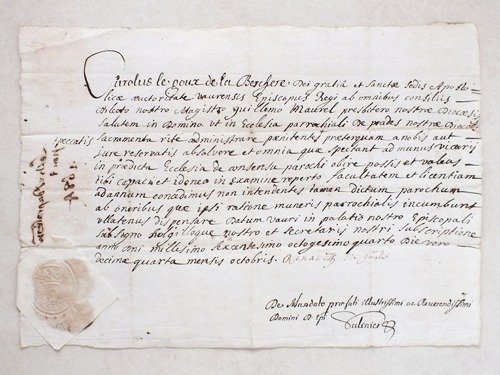 Carolus le goux de la Berchere Dei gratiâ et sanctæ sedis Aposto-
licæ autoritate vaurensis Episcopus Regi ab omnibus consiliis
Dilecto nostro Magistro guillelmo Maurel presbitero nostræ Diœcesis
salutem in Domino ut in Ecclesia parrochiali de prades nostræ Diœc
sacramenta rite administrare pœnitentes preterquam a nobis aut
jure reservatis absolvere et omnia quæ spectant ad munus vicarij
in prædicta Ecclesia de consensu parochi obire possis et valeas
tibi capaci et idoneo in examine reperto facultatem et licentiam
ad annum concedimus non intendentes tamen Dictum parochum
ab oneribus quæ ipsi ratione muneris parrochialis incumbunt
ullatenus dispensare Datum vauri in palatio nostro Episcopali
sub signo sigilloque nostro et secretarij nostri subscriptione
anno Dni millesimo sexcentesimo octogesimo quarto Die vero
decima quarta mensis octobris.
peccatis
De Mandato præfati illustrissimi ac Reverendissimi
Domini D epi